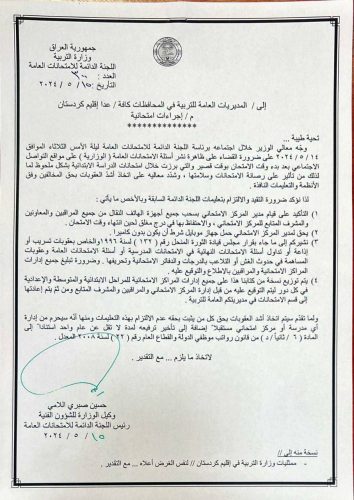 جمهورية العراق
وزارة التربية
اللجنة الدائمة للامتحانات العامة
العدد : ٣٠٠
التاريخ : ١٥ / ٥ / ٢٠٢٤
إلى / المديريات العامة للتربية في المحافظات كافة / عدا إقليم كردستان
م / إجراءات امتحانية
**************
تحية طيبة ...
وجّه معالي الوزير خلال اجتماعه برئاسة اللجنة الدائمة للامتحانات العامة ليلة الأمس الثلاثاء الموافق
١٤ / ٥ / ٢٠٢٤ على ضرورة القضاء على ظاهرة نشر أسئلة الامتحانات العامة ( الوزارية ) على مواقع التواصل
الاجتماعي بعد بدء وقت الامتحان بوقت قصير والتي برزت خلال امتحانات الدراسة الابتدائية بشكل ملحوظ لما
لذلك من تأثير على رصانة الامتحانات وسلامتها، وشدد معاليه على اتخاذ أشد العقوبات بحق المخالفين وفق
الأنظمة والتعليمات النافذة.
لذا نؤكد ضرورة التقيد والالتزام بتعليمات اللجنة الدائمة السابقة وبالأخص ما يأتي:
١) التأكيد على قيام مدير المركز الامتحاني بسحب جميع أجهزة الهاتف النقال من جميع المراقبين والمعاونين
والمشرف المتابع للمركز الامتحاني، والاحتفاظ بها في درج مغلق لحين انتهاء وقت الامتحان .
٢) يحق لمدير المركز الامتحاني حمل جهاز موبايل شرط أن يكون بدون كاميرا .
٣) نشيركم إلى ما جاء بقرار مجلس قيادة الثورة المنحل رقم ( ١٣٢ ) لسنة ١٩٩٦ والخاص بعقوبات تسريب أو
إذاعة أو تداول أسئلة الامتحانات النهائية في الامتحانات المدرسية أو أسئلة الامتحانات العامة وعقوبات
المساهمة في حدوث الغش أو التلاعب بالدرجات والدفاتر الامتحانية وتحريفها . وضرورة تبليغ جميع إدارات
المراكز الامتحانية والمراقبين بالاطلاع والتوقيع عليه .
٤) يتم توزيع نسخة من كتابنا هذا على جميع إدارات المراكز الامتحانية للمراحل الابتدائية والمتوسطة والإعدادية
في كل دور ليتم التوقيع عليه من قبل إدارة المركز الامتحاني والمراقبين والمشرف المتابع ومن ثم يتم إعادتها
إلى قسم الامتحانات في مديريتكم العامة للتربية.
ولما تقدم سيتم اتخاذ أشد العقوبات بحق كل من يثبت بحقه عدم الالتزام بهذه التعليمات ومنها أنه سيحرم من إدارة
أي مدرسة أو مركز امتحاني مستقبلاً إضافة إلى تأخير ترفيعه لمدة لا تقل عن عام واحد استناداً إلى
المادة ( ٦ / ثانيا / د ) من قانون رواتب موظفي الدولة والقطاع العام رقم ( ٢٢ ) لسنة ٢٠٠٨ المعدل .
لاتخاذ ما يلزم ... مع التقدير .
حسين صبري اللامي
وكيل الوزارة للشؤون الفنية
رئيس اللجنة الدائمة للامتحانات العامة
١٥ / ٥ / ٢٠٢٤
نسخة منه إلى //
- ممثليات وزارة التربية في إقليم كردستان // لنفس الغرض أعلاه ... مع التقدير .